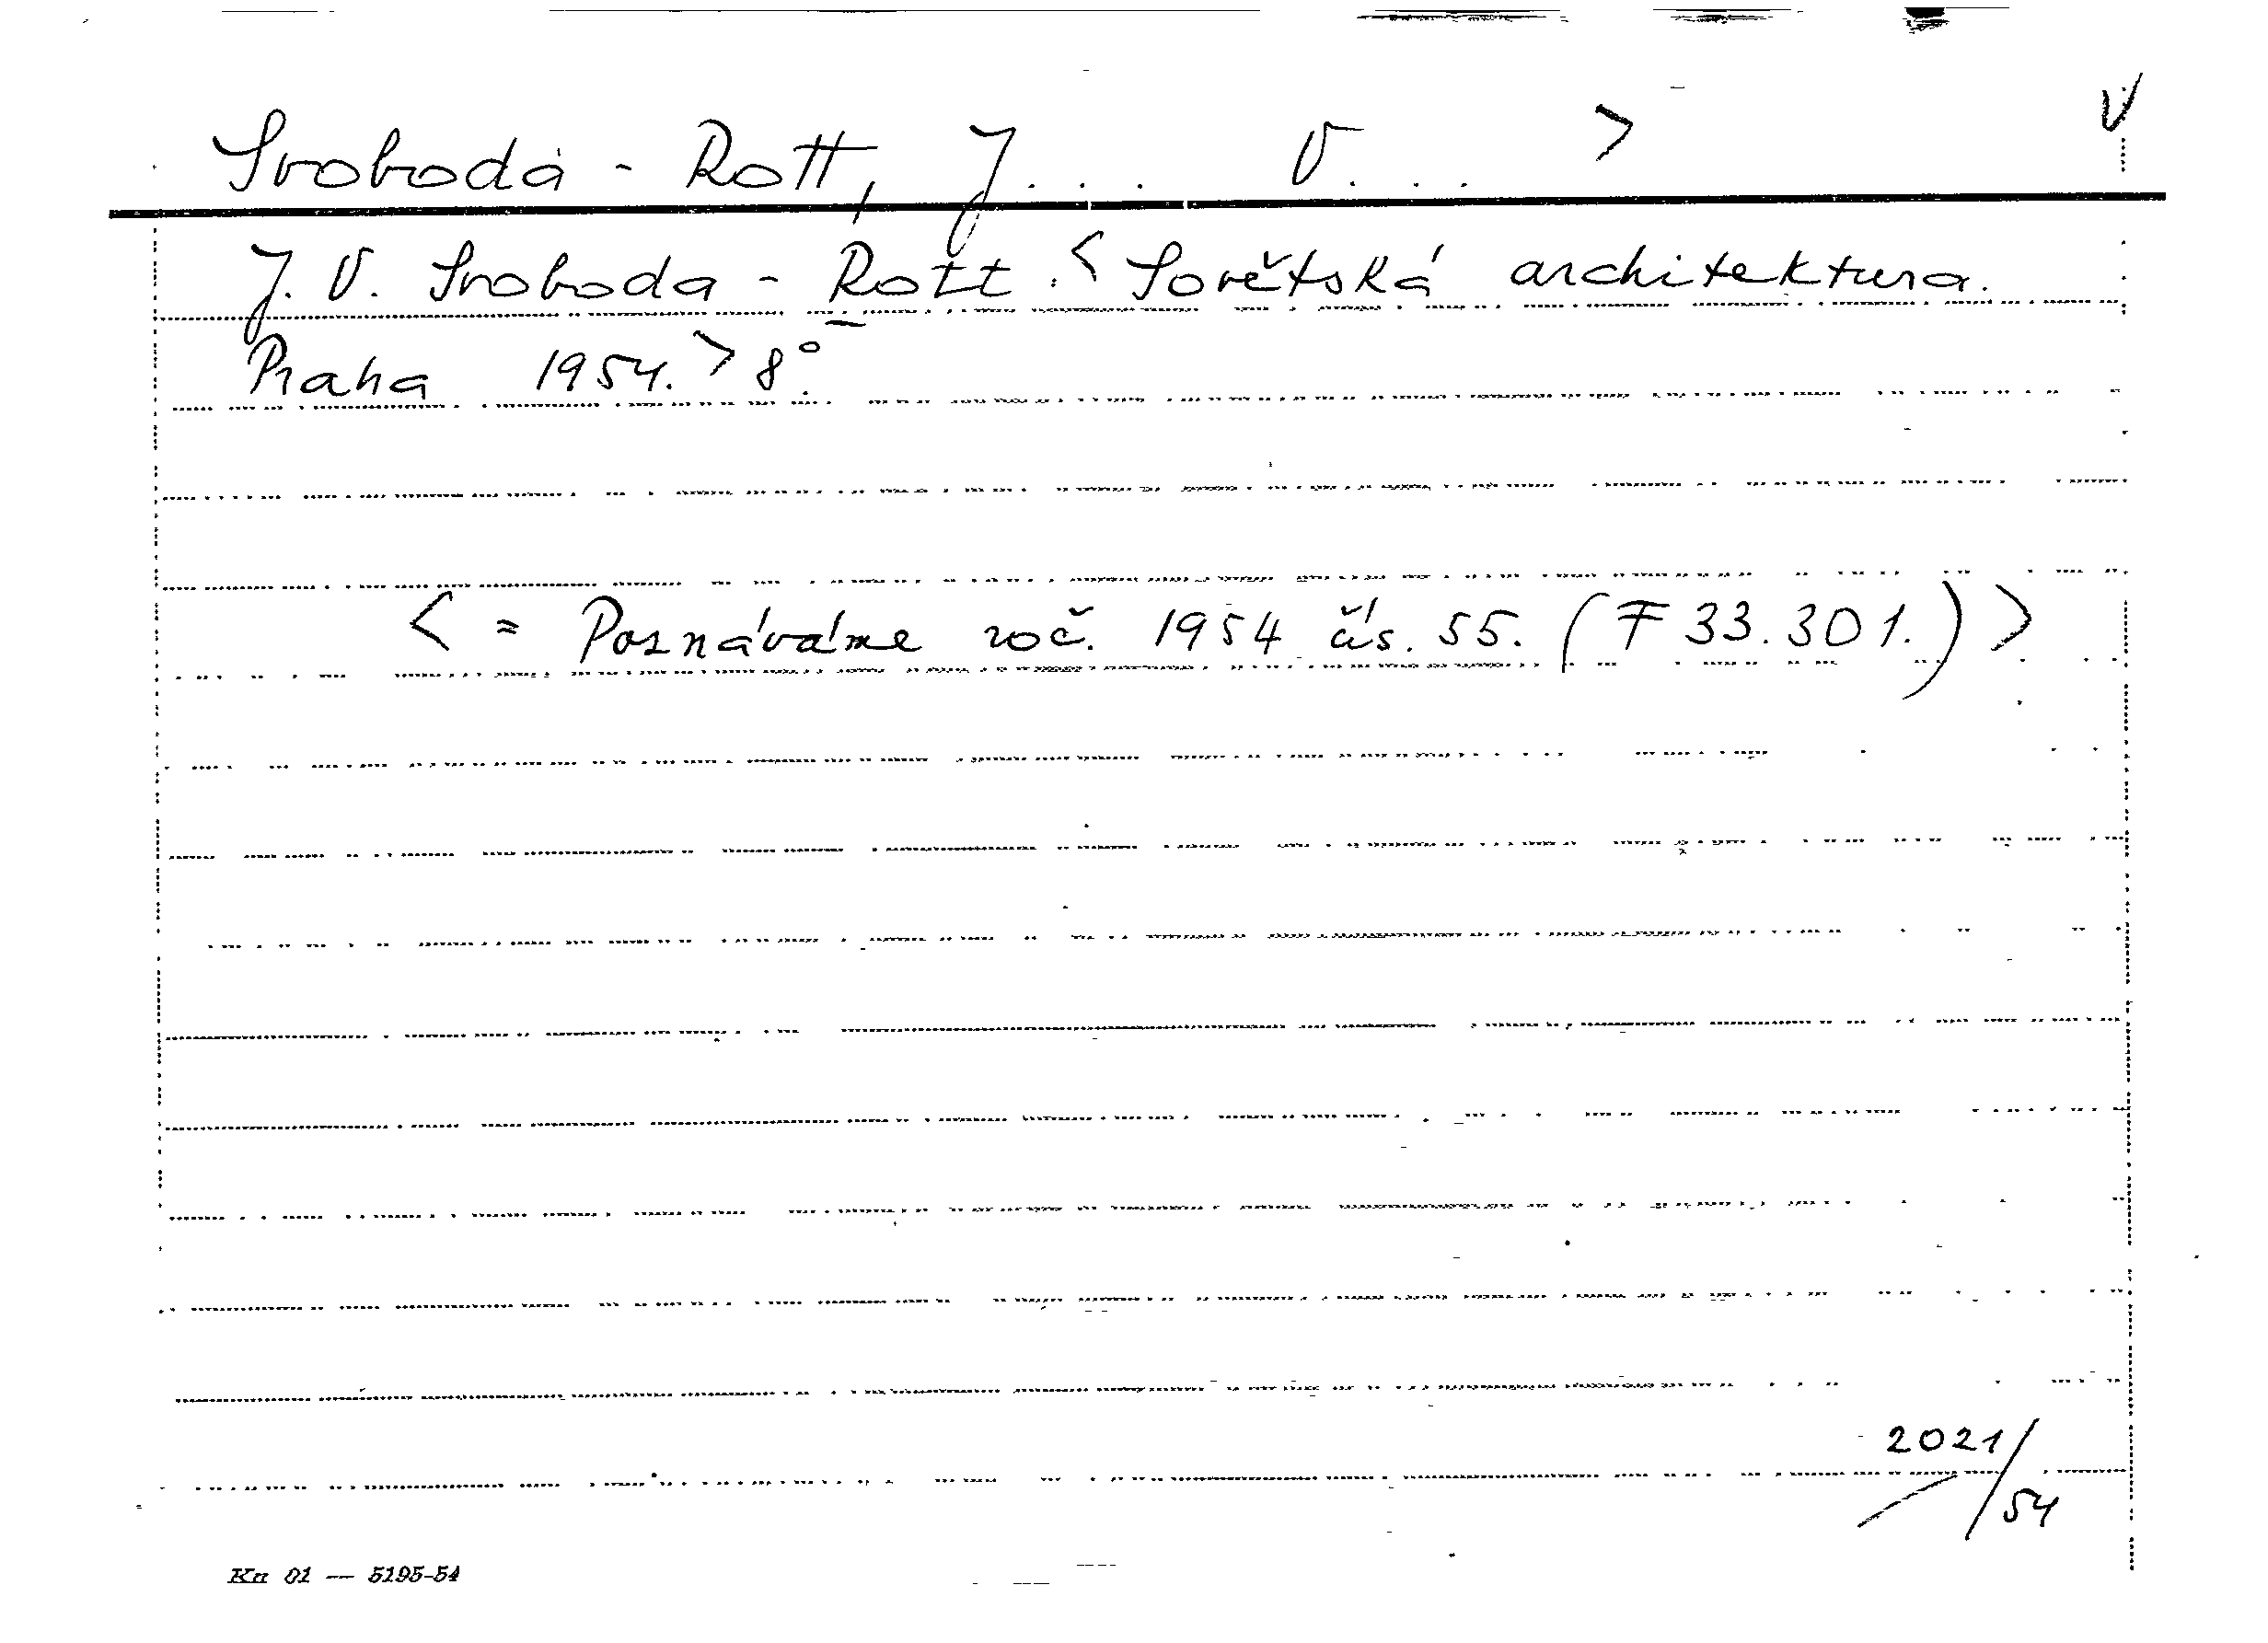 V
Svoboda - Rott, J... V... >
J. V. Svoboda - Rott. < Sovětská architektura.
Praha 1954. > 8°.
< = Poznáváme roč. 1954 čís. 55. (F 33.301.) >
2021/54
Kn 01 — 5195-54